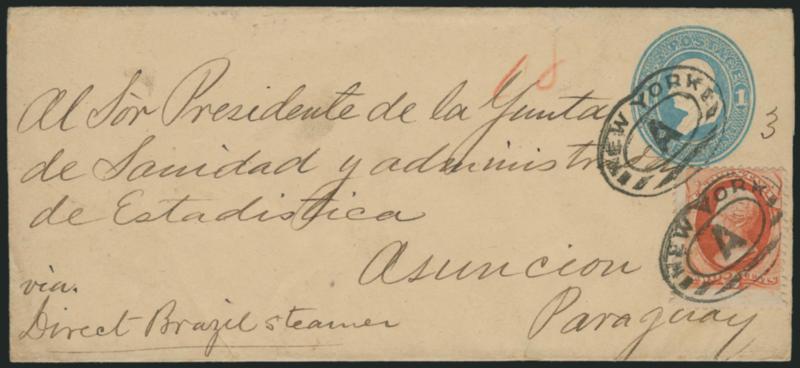 10
POSTAGE
1
NEW YORK
A
3
Al Sõr Presidente de la Yunta
de Sanidad y administrador
de Estadistica
NEW YORK
A
Asuncion
via.
Direct Brazil steamer
Paraguay